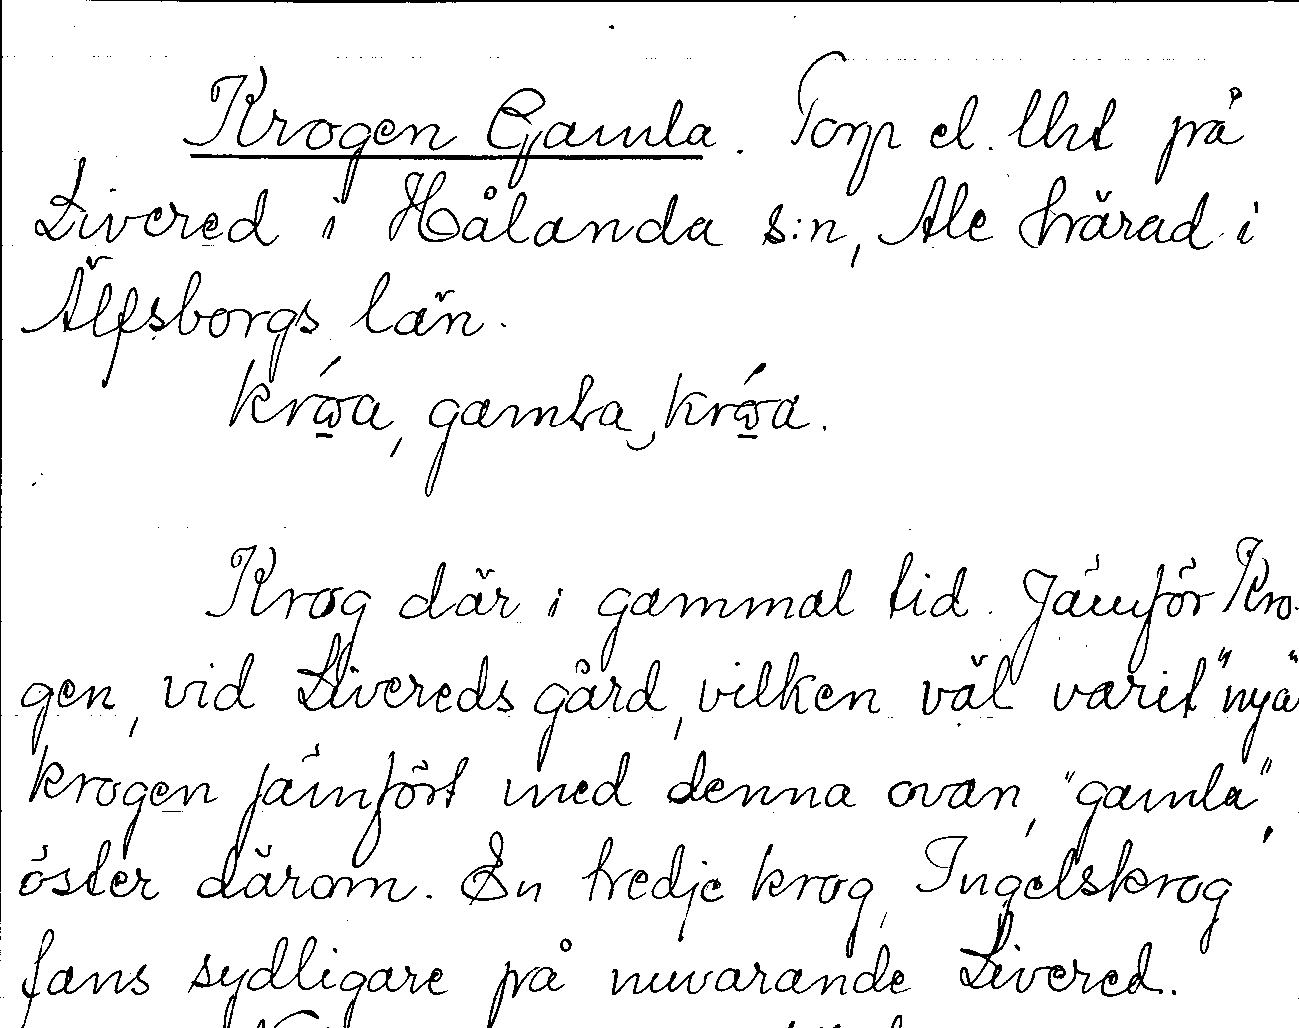 Krogen Gamla. Torp el. lht på
Livered i Hålanda s:n, Ale härad i
Älfsborgs län.
krɷ́a, gamla krɷ́a.
Krog där i gammal tid. Jämför Kro-
gen, vid Livereds gård, vilken väl varit "nya"
krogen jämfört med denna ovan, "gamla",
öster därom. En tredje krog, Ingelskrog
fans sydligare på nuvarande Livered.